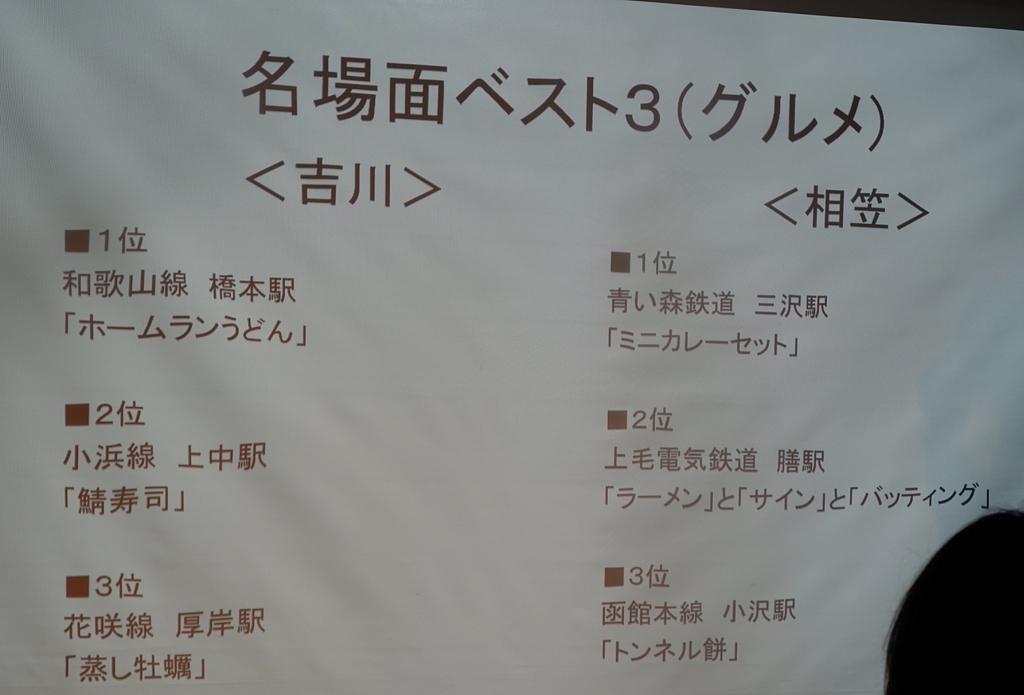 名場面ベスト3(グルメ)
<吉川>
■1位
和歌山線 橋本駅
「ホームランうどん」
■2位
小浜線 上中駅
「鯖寿司」
■3位
花咲線 厚岸駅
「蒸し牡蠣」
<相笠>
■1位
青い森鉄道 三沢駅
「ミニカレーセット」
■2位
上毛電気鉄道 膳駅
「ラーメン」と「サイン」と「バッティング」
■3位
函館本線 小沢駅
「トンネル餅」